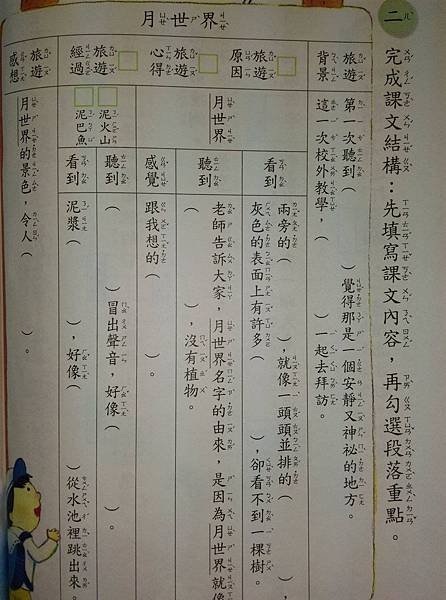 二
完成課文結構：先填寫課文內容，再勾選段落重點。
月世界
旅遊背景
第一次聽到（　　）覺得那是一個安靜又神祕的地方。
這一次校外教學，（　　）一起去拜訪。
□旅遊原因
□旅遊心得
□旅遊經過
月世界
看到
兩旁的（　　），就像一頭頭並排的（
灰色的表面上有許多（　　），卻看不到一棵樹。
聽到
老師告訴大家，月世界名字的由來，是因為月世界就像
（　　），沒有植物。
感覺
跟我想的（　　）。
□泥火山
□泥巴魚
聽到
（　　）冒出聲音，好像（　　）。
看到
泥漿（　　），好像（　　）從水池裡跳出來。
旅遊感想
月世界的景色，令人（　　）。